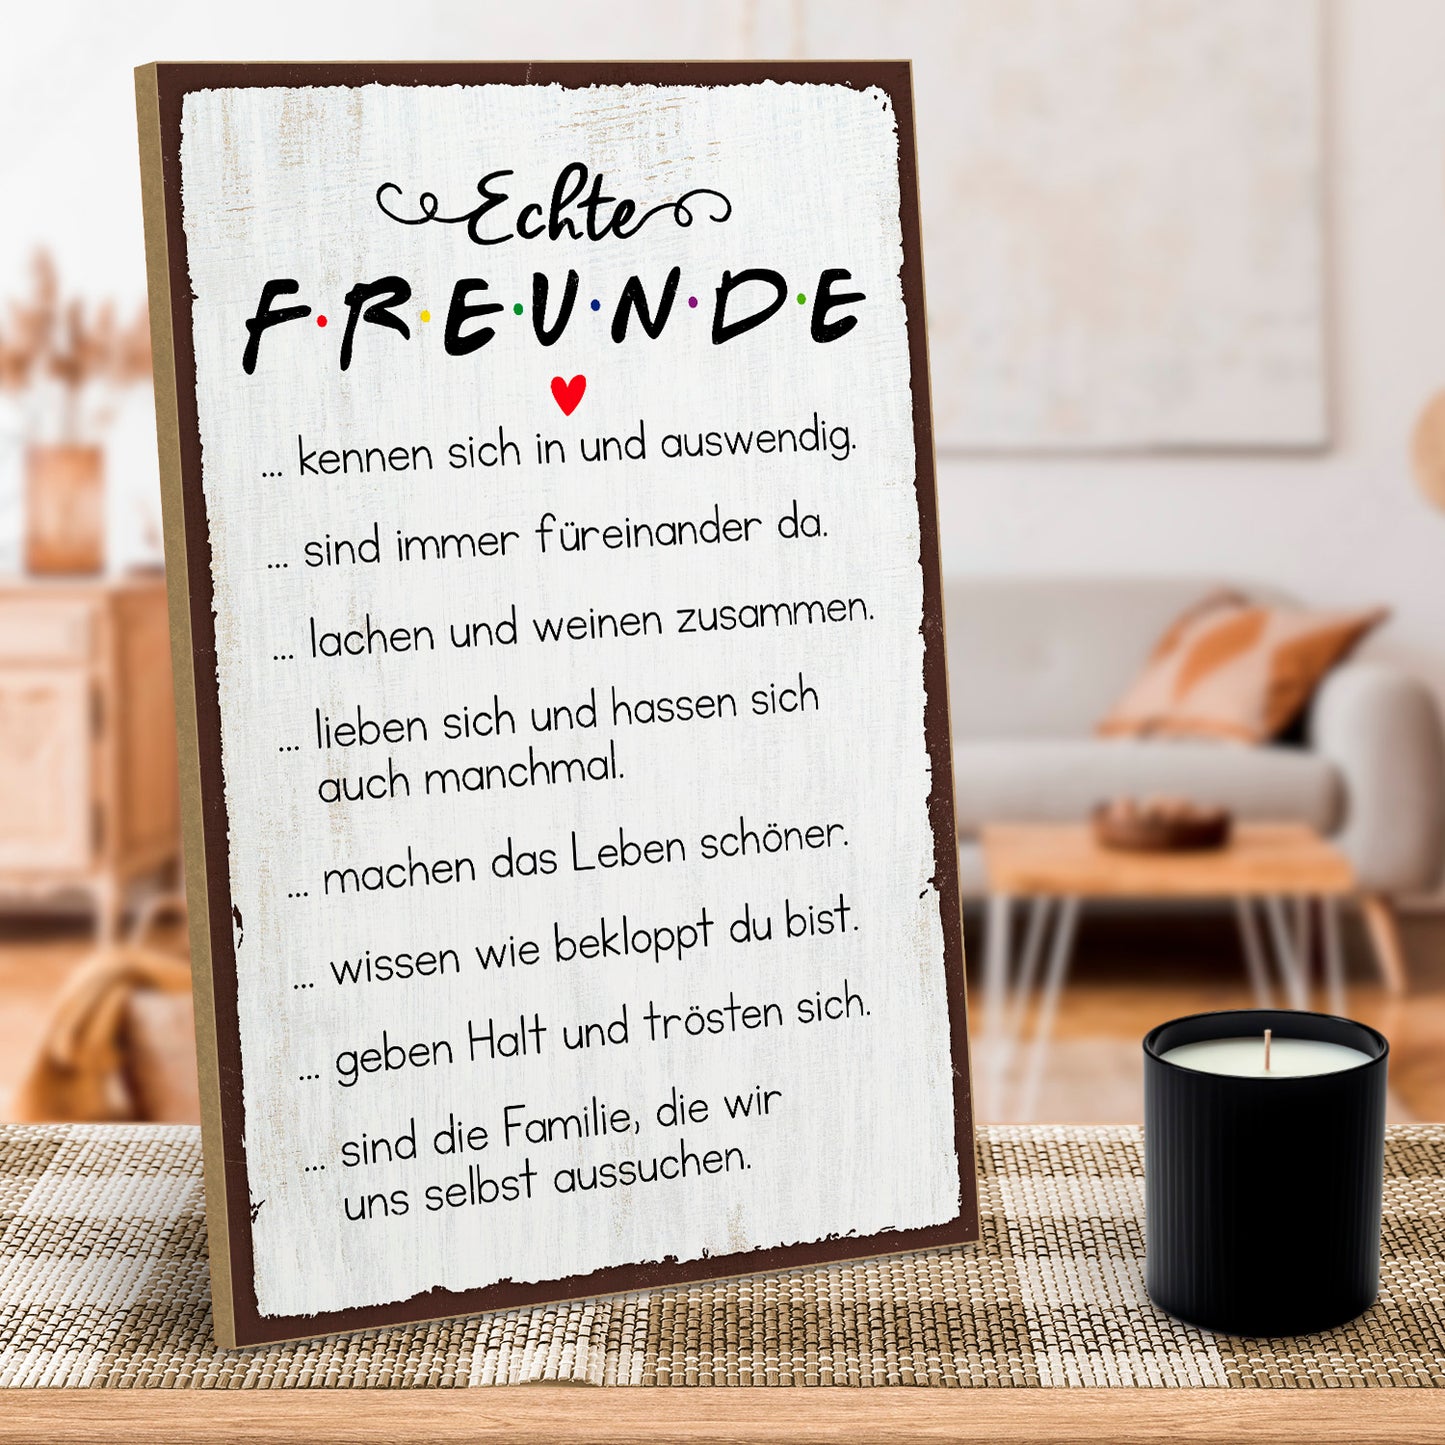 Echte
F•R•E•U•N•D•E
... kennen sich in und auswendig.
... sind immer füreinander da.
... lachen und weinen zusammen.
... lieben sich und hassen sich
auch manchmal.
... machen das Leben schöner.
... wissen wie bekloppt du bist.
... geben Halt und trösten sich.
... sind die Familie, die wir
uns selbst aussuchen.